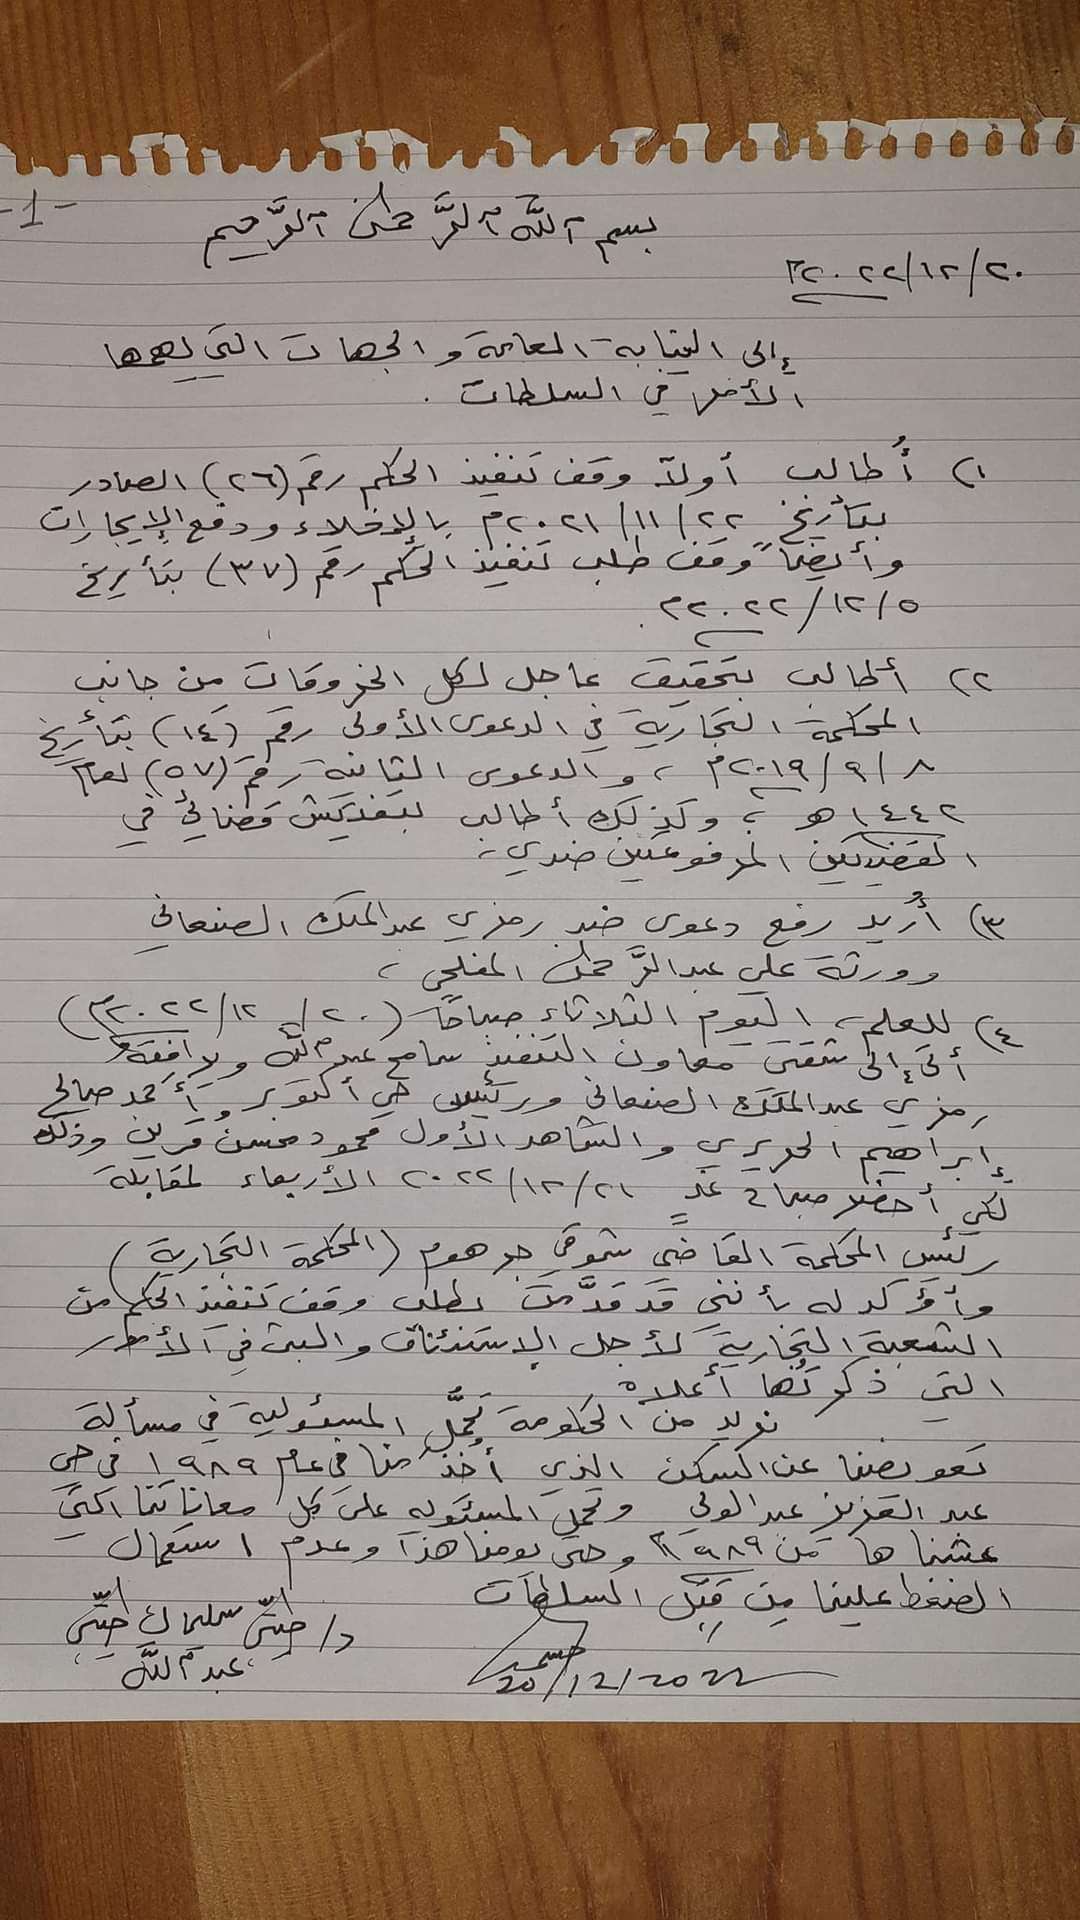 -1-
بسم الله الرَّحمٰن الرَّحيم
٢٠/١٢/٢٠٢٢م
إلى النيابة العامة والجهات التي يهمها
الأمر في السلطات .
١) أُطالب أولاً وقف تنفيذ الحكم رقم (٢٦) الصادر
بتأريخ ٢٢/١١/٢٠٢١م بالإخلاء ودفع الإيجارات
وأيضاً وقف طلب تنفيذ الحكم رقم (٣٧) بتأريخ
٥/١٢/٢٠٢٢م.
٢) أطالب بتحقيق عاجل لكل الخروقات من جانب
المحكمة التجارية في الدعوى الأولى رقم (١٤) بتأريخ
٨/٩/٢٠١٩م ، والدعوى الثانية رقم (٥٧) لعام
١٤٤٢هـ ؛ وكذلك أطالب بتفتيش قضائي في
القضيتين المرفوعتين ضدي ؛
٣) أُريد رفع دعوى ضد رمزي عبدالملك الصنعاني
وورثة علي عبدالرَّحمٰن المفلحي ،
٤) للعلم ، اليوم الثلاثاء صباحاً (٢٠/١٢/٢٠٢٢م)
أتى إلى شقتي معاون التنفيذ سامح عبدالله ويرافقه
رمزي عبدالملك الصنعاني ورئيس حي أكتوبر وأحمد صالح
إبراهيم الحريري والشاهد الأول محمود محسن قرين وذلك
لكي أحضر صباح غدٍ ٢١/١٢/٢٠٢٢ الأربعاء لمقابلة
رئيس المحكمة القاضي شوقي جرهوم (المحكمة التجارية)
وأؤكد له بأنني قد قدَّمت بطلب وقف تنفيذ الحكم من
الشعبة التجارية لأجل الإستئناف والبت في الأمور
التي ذكرتُها أعلاه
نريد من الحكومة تحمُّل المسئولية في مسألة
تعويضنا عن السكن الذي أُخذ منا في عام ١٩٨٩ في حي
عبدالعزيز عبدالولي وتحمل المسئولية على كل معاناتنا التي
عشناها من ١٩٨٩م وحتى يومنا هذا وعدم استعمال
الضغط علينا مِن قِبَل السلطات
د/ حِتّي سليمان حِتّي
عبدالله
20/12/2022